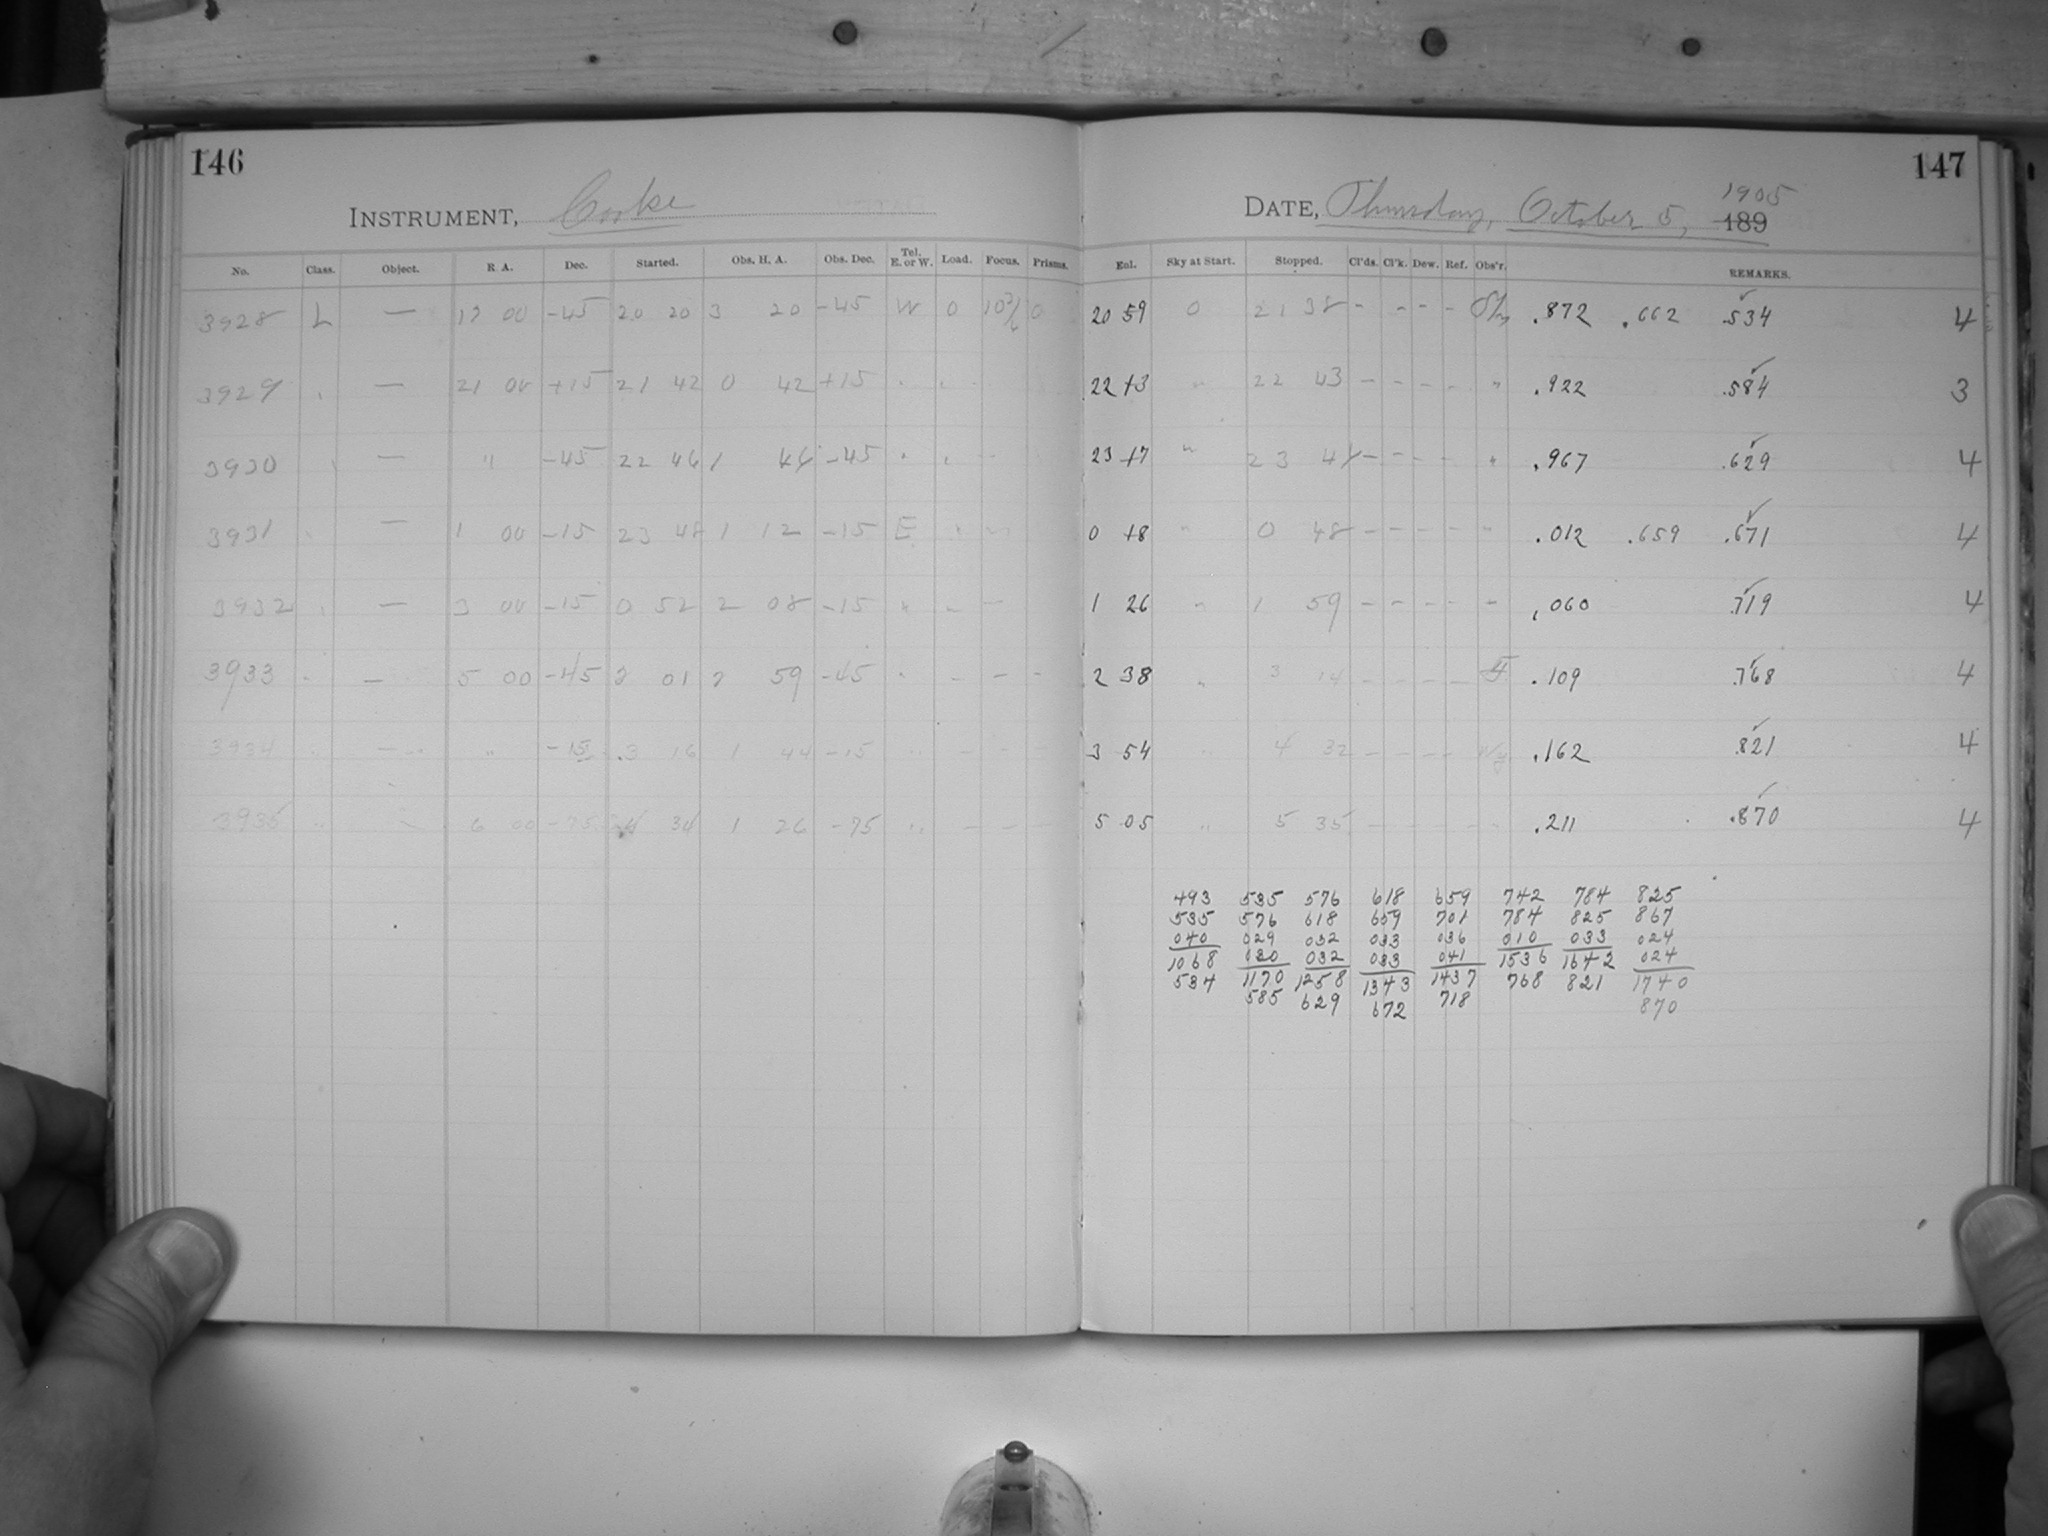 146
147
INSTRUMENT, Cooke
DATE, Thursday, October 5, 1905 189
No. Class. Object. R. A. Dec. Started. Obs. H. A. Obs. Dec. Tel. E. or W. Load. Focus. Prisms. Eol. Sky at Start. Stopped. Cl'ds. Cl'k. Dew. Ref. Obs'r. REMARKS.
3928 L — 17 00 -45 20 20 3 20 -45 W 0 0 20 59 0 21 38 - - - - .872 .662 .534 4
3929 — 21 00 +15 21 42 0 42 +15 22 43 " 22 43 - - - - " .922 .584 3
3930 — " -45 22 46 1 46 -45 23 47 " 23 48 - - - - " .967 .629 4
3931 — 1 00 -15 23 48 1 12 -15 E 0 48 " 0 48 - - - - " .012 .659 .671 4
3932 — 3 00 -15 0 52 2 08 -15 " 1 26 " 1 59 - - - - - .060 .719 4
3933 — 5 00 -45 2 01 2 59 -45 " 2 38 " 3 14 - - - - .109 .768 4
3934 — " -15 3 16 1 44 -15 " 3 54 " 4 32 - - - - .162 .821 4
3935 " - 6 00 -75 4 34 1 26 -75 " 5 05 " 5 35 - - - - .211 .870 4
493 535 576 618 659 742 784 825
535 576 618 659 701 784 825 867
040 029 032 033 036 010 033 024
1068 030 032 033 041 1536 1642 024
534 1170 1258 1343 1437 768 821 1740
585 629 672 718 870